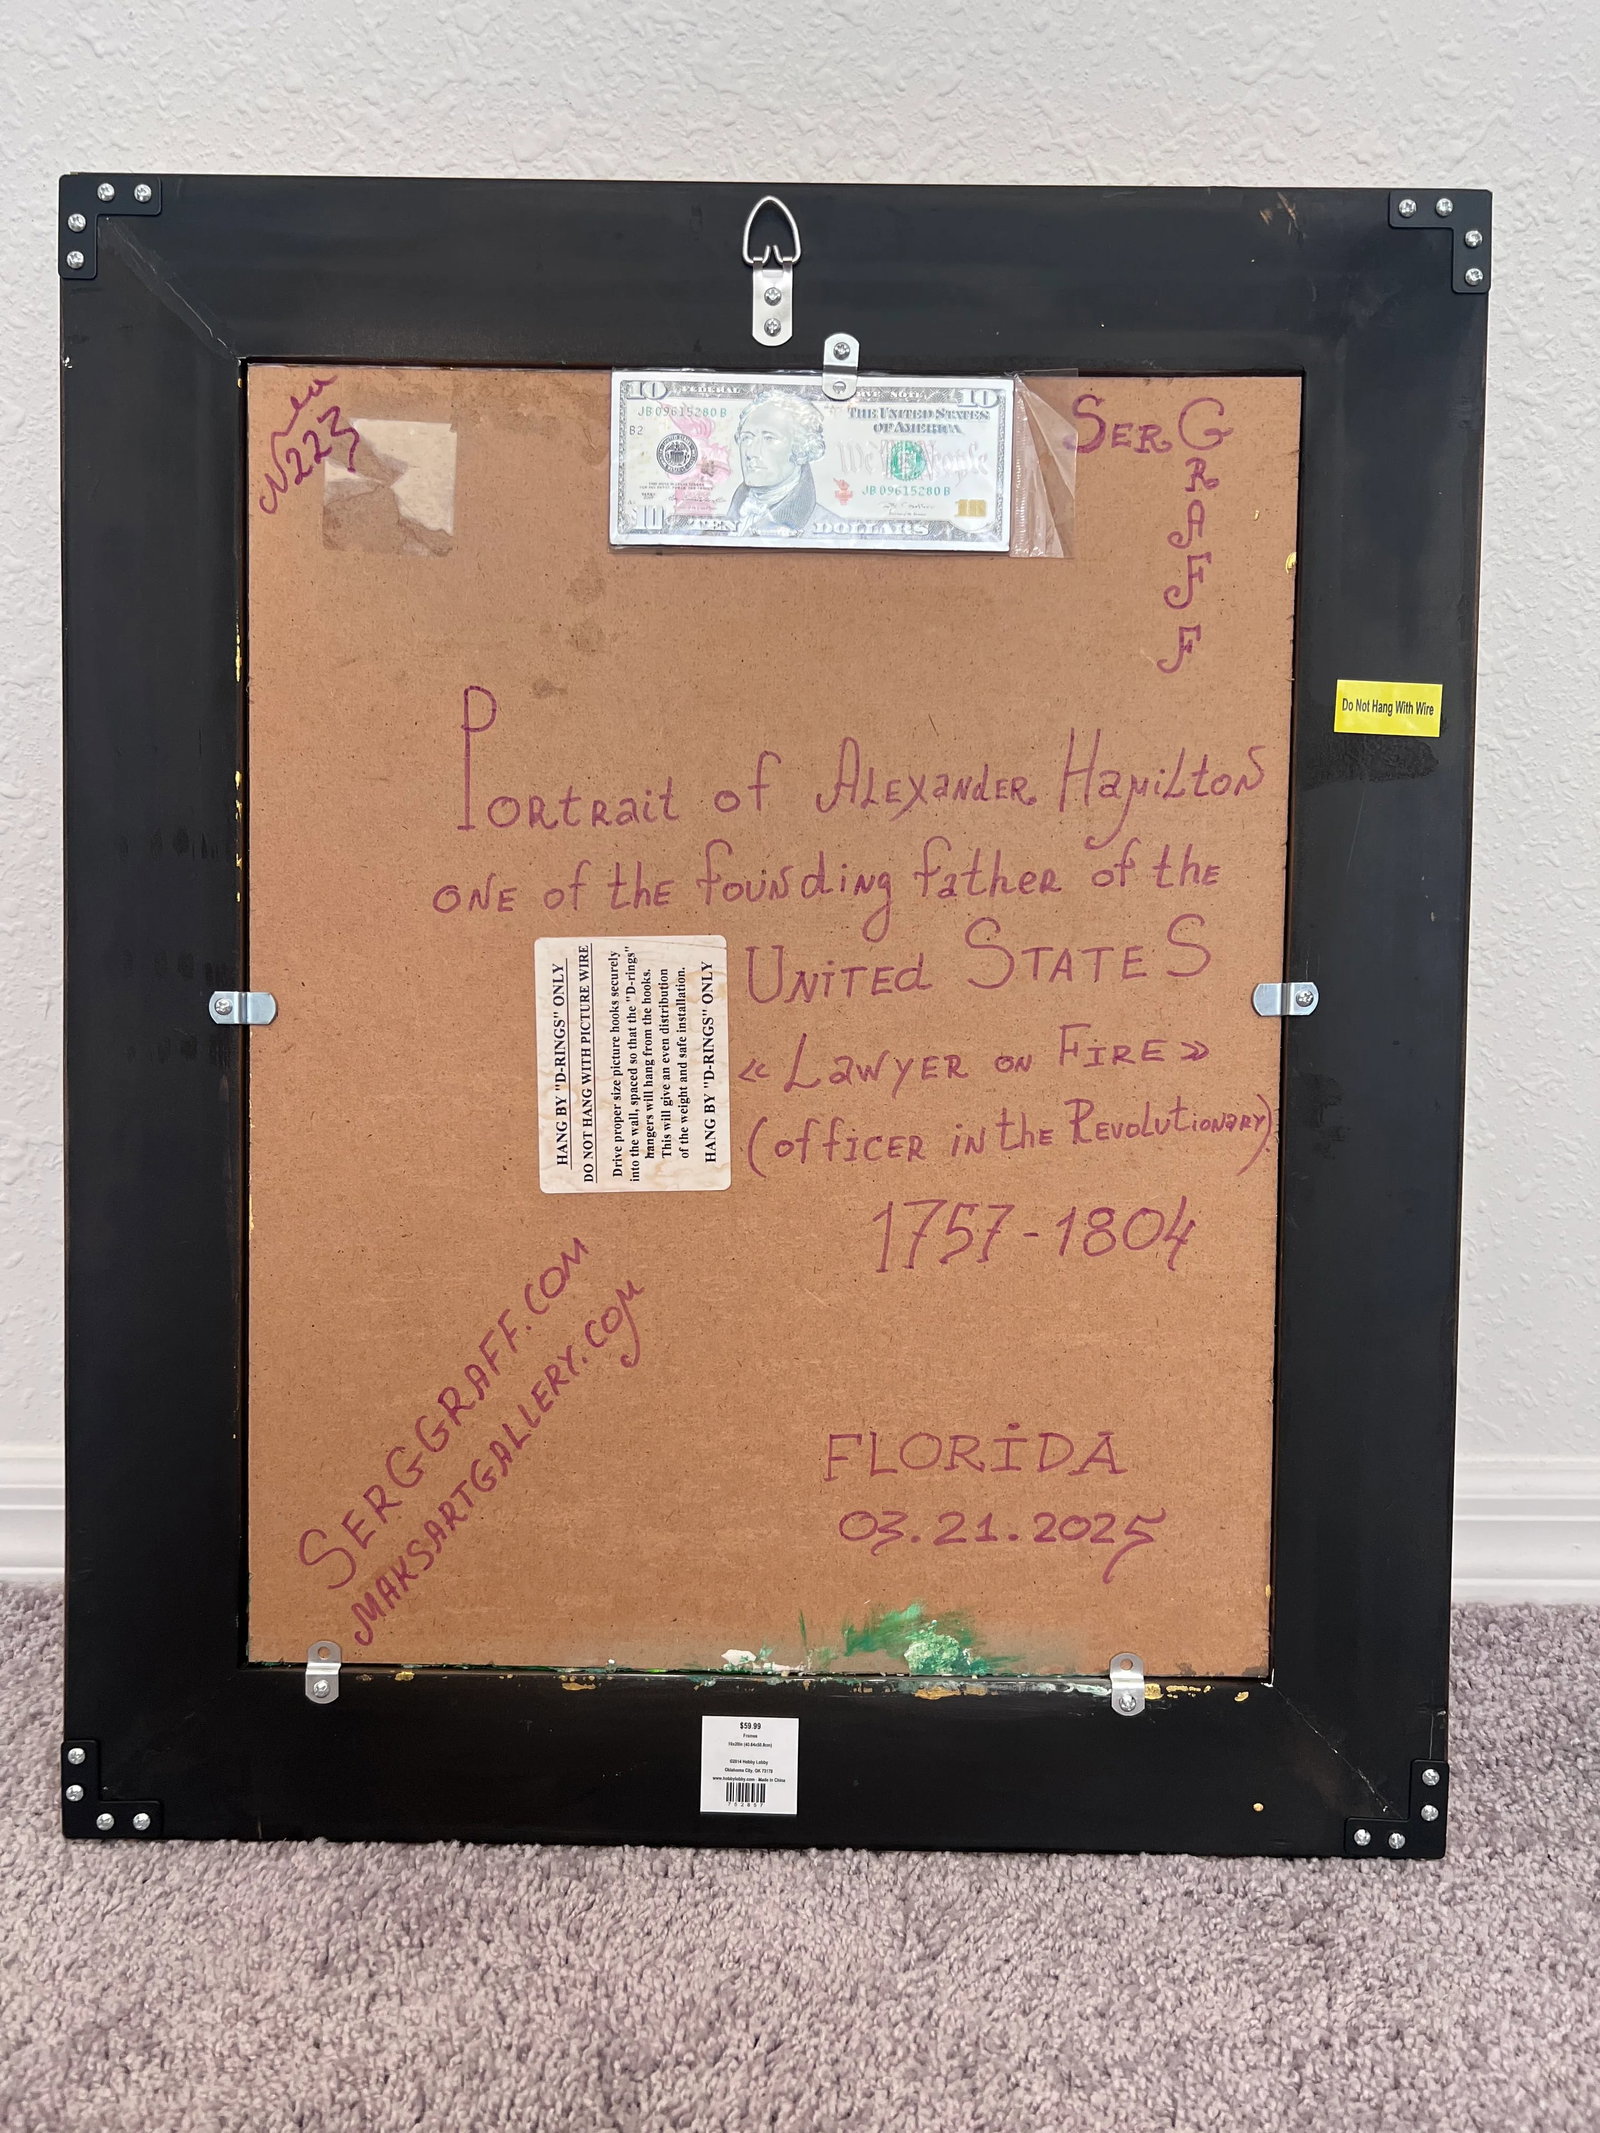 N223
10 FEDERAL RESERVE NOTE 10
JB 09615280 B
THE UNITED STATES
OF AMERICA
B2
We the People
JB 09615280 B
10 TEN DOLLARS 10
SERG
R
A
F
F
Do Not Hang With Wire
Portrait of Alexander Hamilton
one of the founding father of the
United States
« Lawyer on Fire »
(officer in the Revolutionary)
1757-1804
HANG BY "D-RINGS" ONLY
DO NOT HANG WITH PICTURE WIRE
Drive proper size picture hooks securely
into the wall, spaced so that the "D-rings"
hangers will hang from the hooks.
This will give an even distribution
of the weight and safe installation.
HANG BY "D-RINGS" ONLY
SERGGRAFF.COM
MAKSARTGALLERY.COM
FLORIDA
03.21.2025
$59.99
Frames
16x20in (40.64x50.8cm)
©2014 Hobby Lobby
Oklahoma City, OK 73179
www.hobbylobby.com Made in China
752857